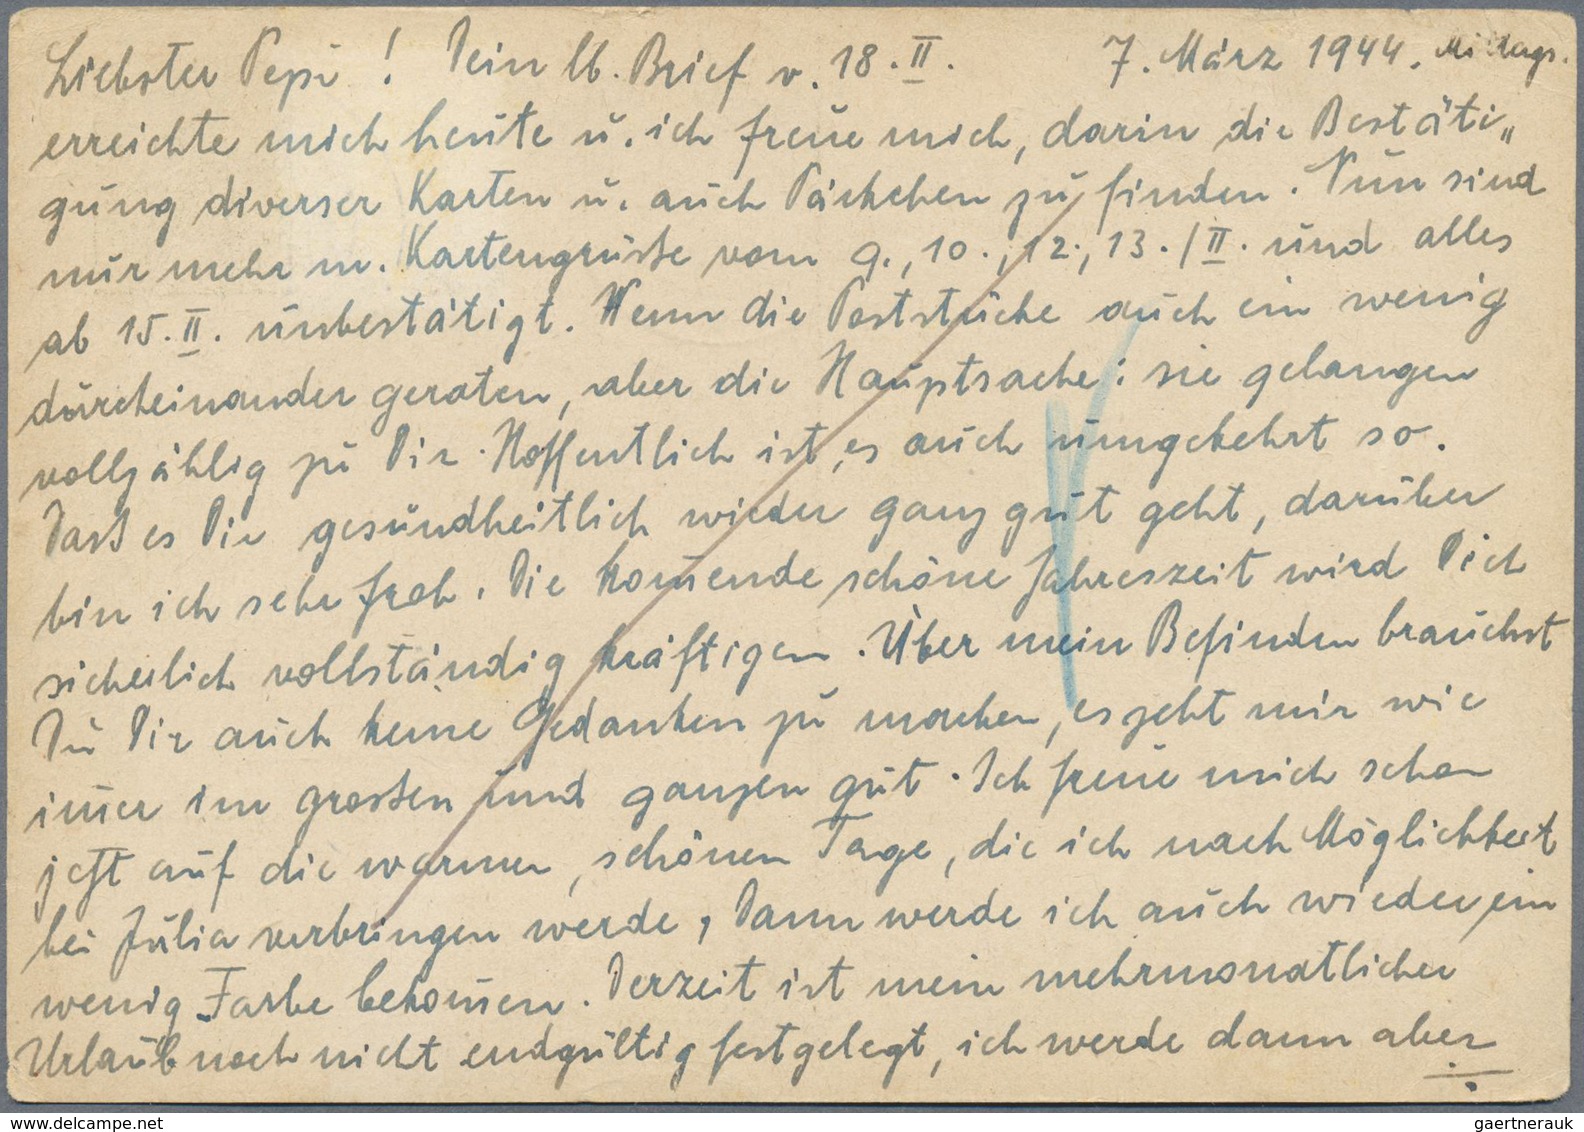 Liebster Pepi! Dein lb. Brief v. 18.II. 7. März 1944. Mittags.
erreichte mich heute u. ich freue mich, darin die Bestäti„
gung diverser Karten u. auch Päckchen zu finden. Nun sind
nur mehr m. Kartengrüsse vom 9., 10., 12., 13./II. und alles
ab 15.II. unbestätigt. Wenn die Poststücke auch ein wenig
durcheinander geraten, aber die Hauptsache: sie gelangen
vollzählig zu Dir. Hoffentlich ist es auch umgekehrt so.
Dass es Dir gesundheitlich wieder ganz gut geht, darüber
bin ich sehr froh. Die kom̅ende schöne Jahreszeit wird Dich
sicherlich vollständig kräftigen. Über mein Befinden brauchst
Du Dir auch keine Gedanken zu machen, es geht mir wie
im̅er im grossen und ganzen gut. Ich freue mich schon
jetzt auf die warmen, schönen Tage, die ich nach Möglichkeit
bei Julia verbringen werde, dann werde ich auch wieder ein
wenig Farbe bekom̅en. Derzeit ist mein mehrmonatlicher
Urlaub noch nicht endgültig festgelegt, ich werde dann aber
www.delcampe.net
gaertnerauk